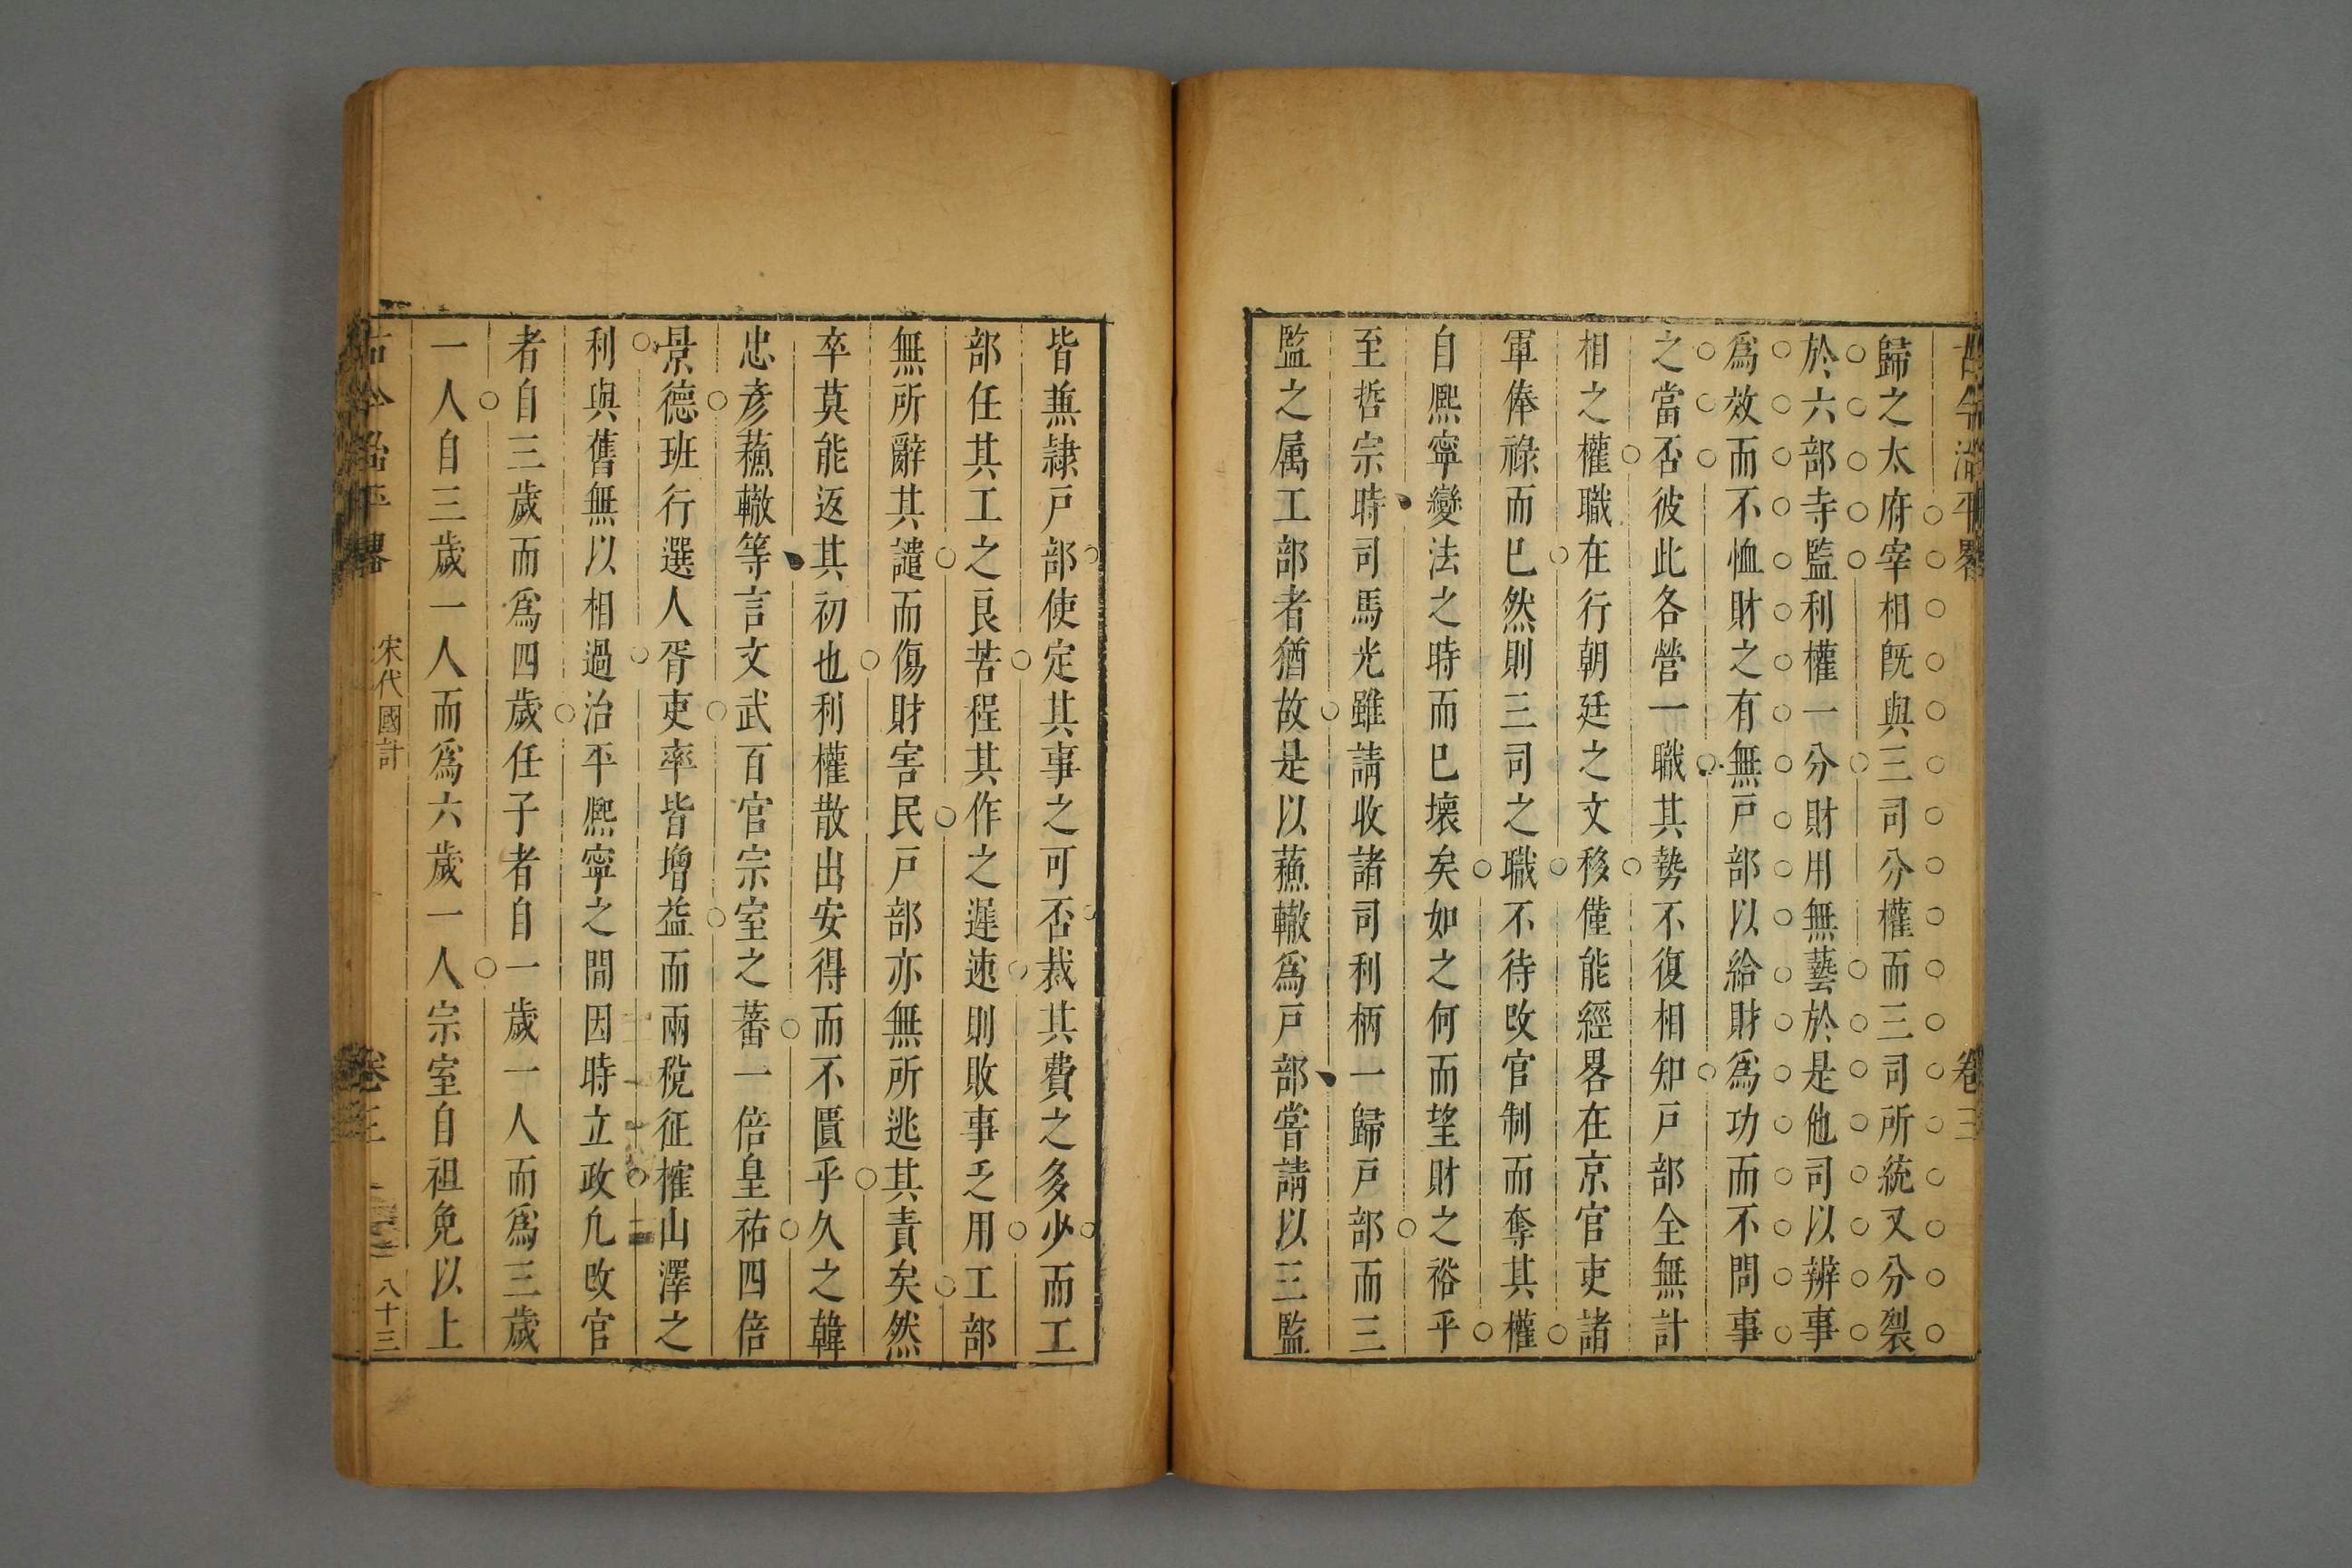 古今治平畧 卷三
歸之太府宰相旣與三司分權而三司所統又分裂
於六部寺監利權一分財用無藝於是他司以辦事
爲效而不恤財之有無戸部以給財爲功而不問事
之當否彼此各營一職其勢不復相知戸部全無計
相之權職在行朝廷之文移僅能經畧在京官吏諸
軍俸祿而已然則三司之職不待改官制而奪其權
自熙寧變法之時而已壊矣如之何而望財之裕乎
至哲宗時司馬光雖請收諸司利柄一歸戸部而三
監之属工部者猶故是以蘓轍爲戸部嘗請以三監
皆兼隷戸部使定其事之可否裁其費之多少而工
部任其工之良苦程其作之遲速則敗事乏用工部
無所辭其譴而傷財害民戸部亦無所逃其責矣然
卒莫能返其初也利權散出安得而不匱乎久之韓
忠彦蘓轍等言文武百官宗室之蕃一倍皇祐四倍
景德班行選人胥吏率皆增益而兩稅征榷山澤之
利與舊無以相過治平熙寧之間因時立政凢改官
者自三歲而爲四歲任子者自一歲一人而爲三歲
一人自三歲一人而爲六歲一人宗室自祖免以上
古今治平畧 宋代國計 卷三 八十三